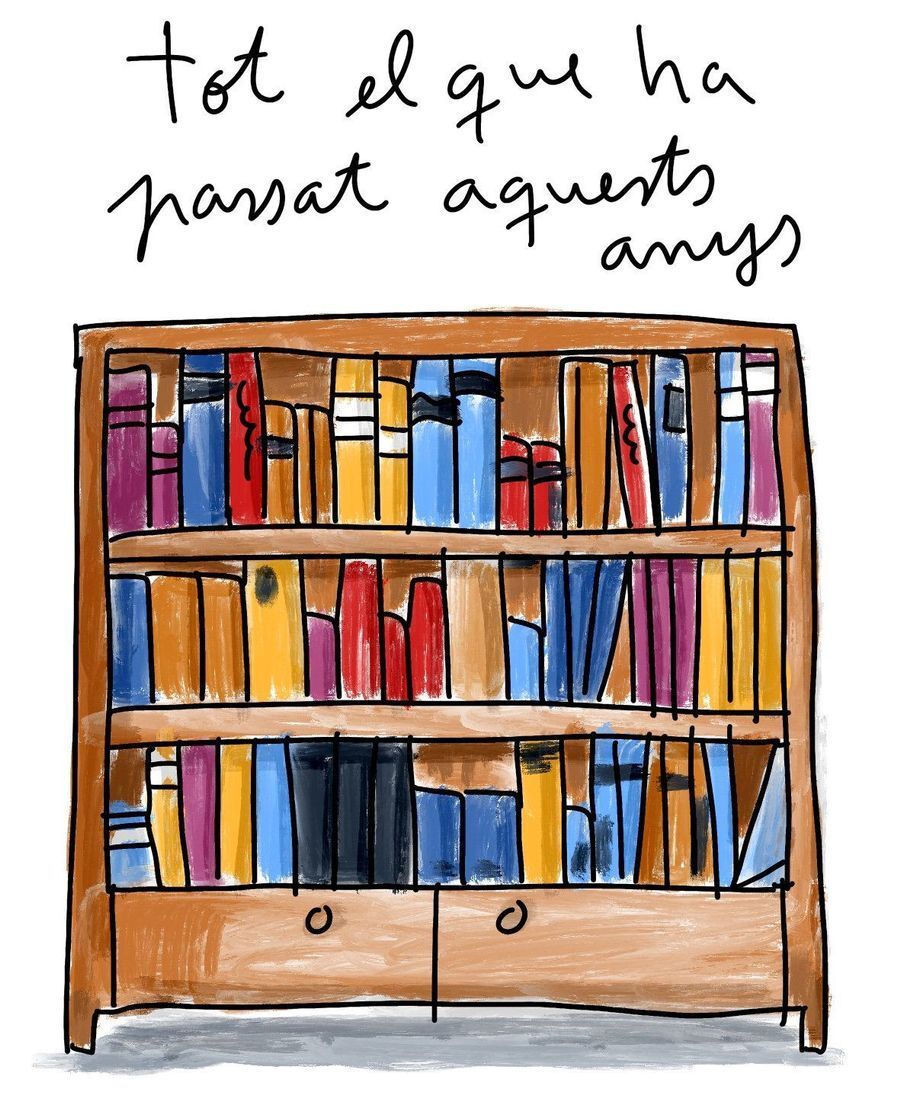 tot el que ha
passat aquests
anys